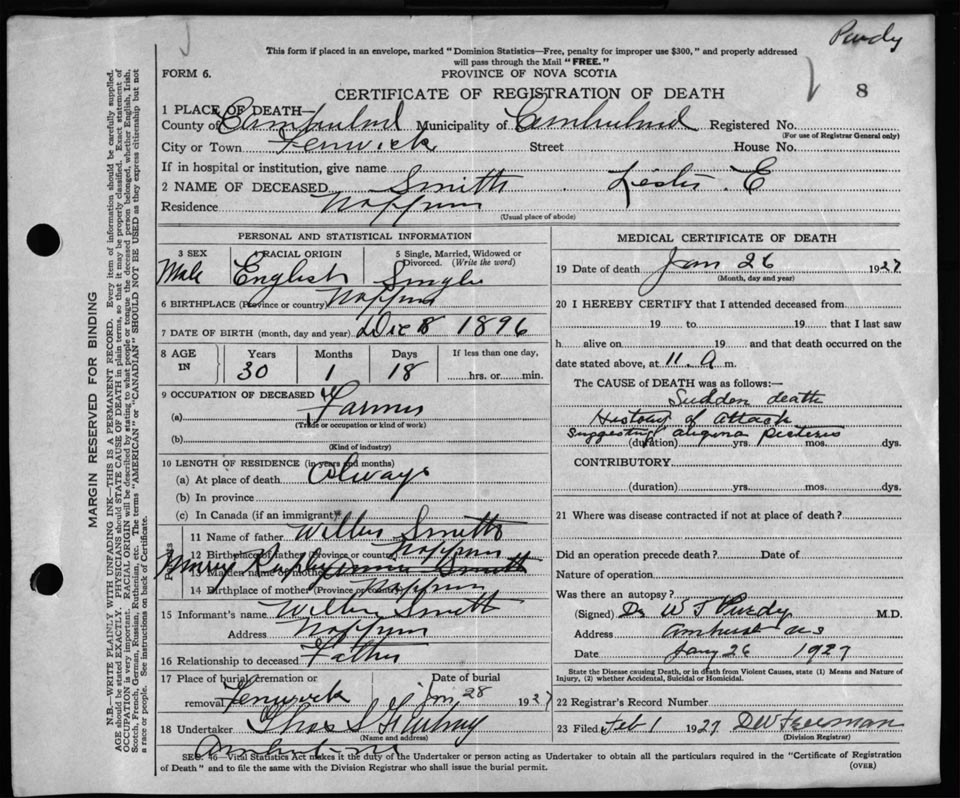 Purdy
This form if placed in an envelope, marked "Dominion Statistics—Free, penalty for improper use $300," and properly addressed
will pass through the Mail "FREE."
FORM 6.
PROVINCE OF NOVA SCOTIA
8
CERTIFICATE OF REGISTRATION OF DEATH
1 PLACE OF DEATH—
County of Cumberland Municipality of Cumberland Registered No.
(For use of Registrar General only)
City or Town Fenwick Street House No.
If in hospital or institution, give name
2 NAME OF DECEASED Smith Lester E
Residence Nappan
(Usual place of abode)
MARGIN RESERVED FOR BINDING
N.B.—WRITE PLAINLY WITH UNFADING INK—THIS IS A PERMANENT RECORD. Every item of information should be carefully supplied.
AGE should be stated EXACTLY. PHYSICIANS should STATE CAUSE OF DEATH in plain terms, so that it may be properly classified. Exact statement of
OCCUPATION is very important. RACIAL ORIGIN will be described by stating to what people or tongue the deceased person belonged, whether English, Irish,
Scotch, French, German, Russian, Ruthenian, etc. The terms "AMERICAN" or "CANADIAN" SHOULD NOT BE USED as they express citizenship but not
a race or people. See instructions on back of Certificate.
PERSONAL AND STATISTICAL INFORMATION
3 SEX
Male
4 RACIAL ORIGIN
English
5 Single, Married, Widowed or
Divorced. (Write the word)
Single
6 BIRTHPLACE (Province or country) Nappan
7 DATE OF BIRTH (month, day and year) Dec 8 1896
8 AGE
IN
Years
30
Months
1
Days
18
If less than one day,
hrs. or min.
9 OCCUPATION OF DECEASED
(a) Farmer
(Trade or occupation or kind of work)
(b)
(Kind of industry)
10 LENGTH OF RESIDENCE (in years and months)
(a) At place of death Always
(b) In province
(c) In Canada (if an immigrant)
Parents
11 Name of father Wilber Smith
12 Birthplace of father (Province or country) Nappan
13 Maiden name of mother Smith
14 Birthplace of mother (Province or country) Nappan
15 Informant's name Wilber Smith
Address Nappan
16 Relationship to deceased Father
17 Place of burial, cremation or
removal Fenwick
Date of burial
Jan 28 1927
18 Undertaker Thos S
(Name and address)
Amherst NS
MEDICAL CERTIFICATE OF DEATH
19 Date of death Jan 26 1927
(Month, day and year)
20 I HEREBY CERTIFY that I attended deceased from
19 to 19 that I last saw
h alive on 19 and that death occurred on the
date stated above, at 11. A m.
The CAUSE of DEATH was as follows:—
Sudden death
History of attack
suggesting angina pectoris
(duration) yrs. mos. dys.
CONTRIBUTORY
(duration) yrs. mos. dys.
21 Where was disease contracted if not at place of death?
Did an operation precede death? Date of
Nature of operation
Was there an autopsy?
(Signed) Dr W T Purdy M.D.
Address Amherst NS
Date Jany 26 1927
State the Disease causing Death, or in death from Violent Causes, state (1) Means and Nature of
Injury, (2) whether Accidental, Suicidal or Homicidal.
22 Registrar's Record Number
23 Filed Feb 1 1927 D W Freeman
(Division Registrar)
SEC. 46—Vital Statistics Act makes it the duty of the Undertaker or person acting as Undertaker to obtain all the particulars required in the "Certificate of Registration
of Death" and to file the same with the Division Registrar who shall issue the burial permit.
(OVER)